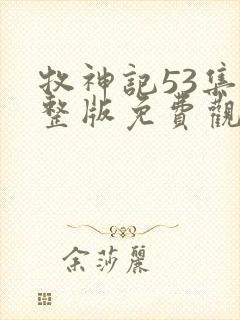 牧神記53集
整版免費觀
余莎麗